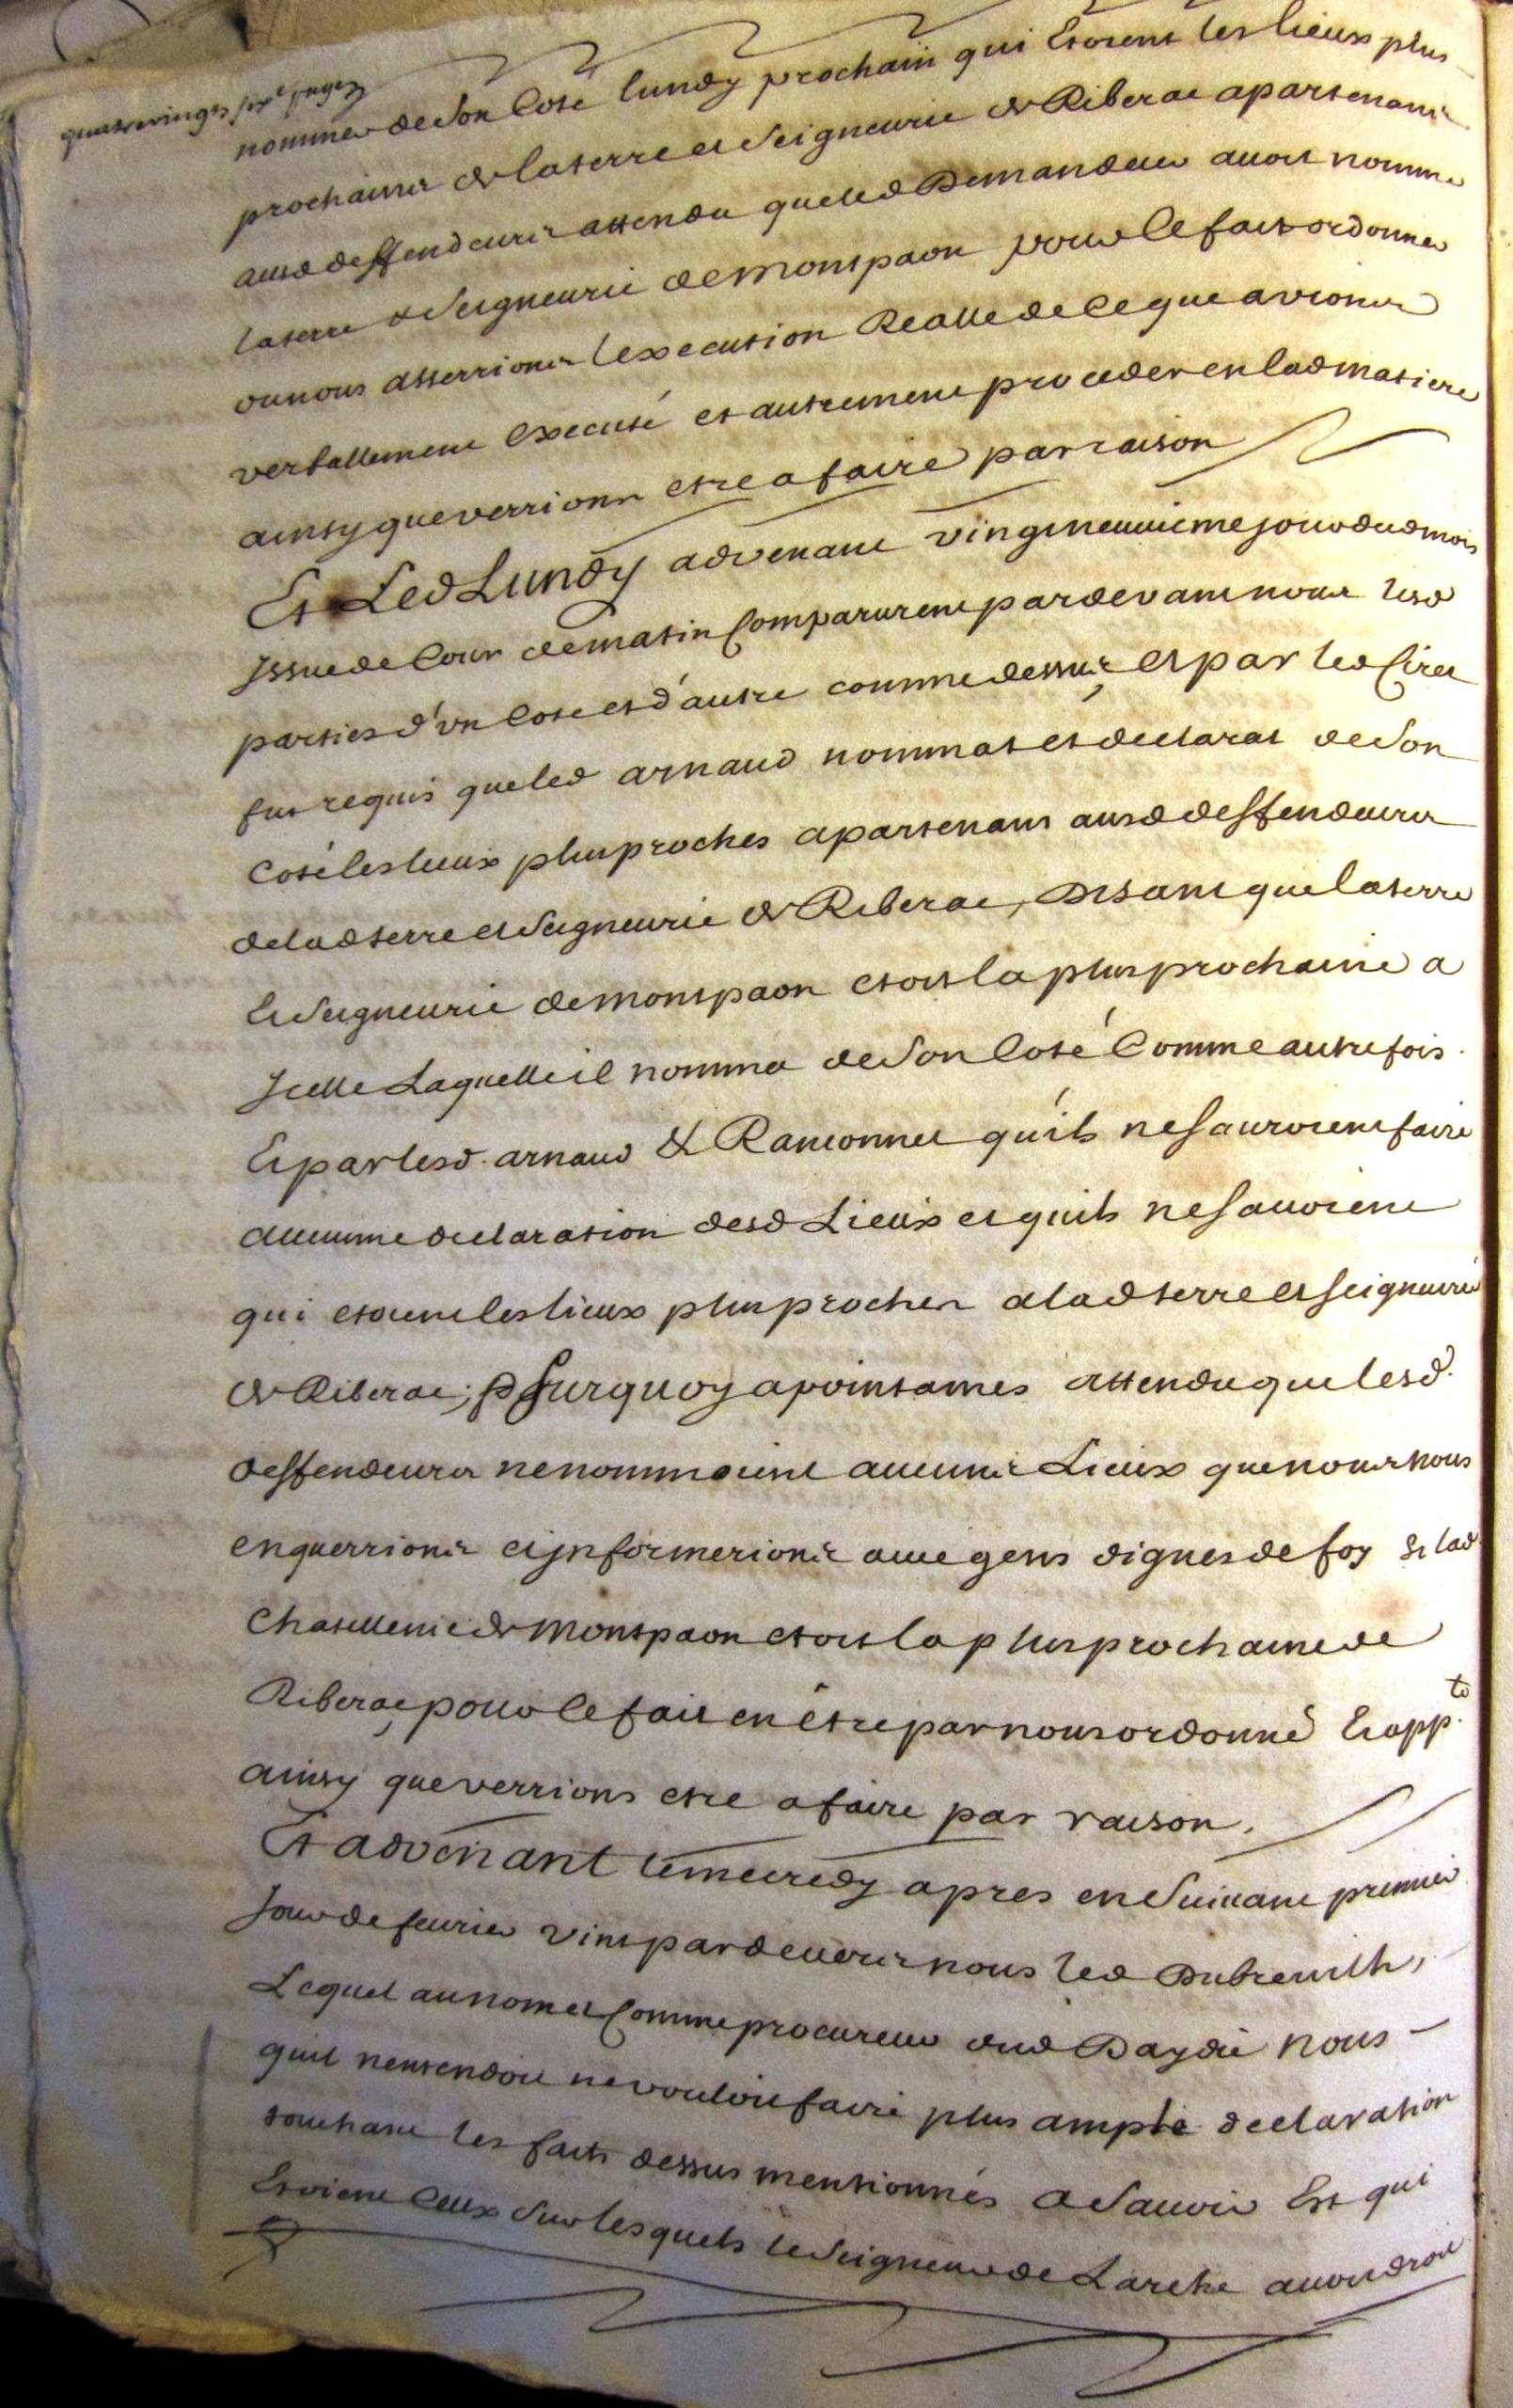 quatrevingts six.e page
nommer de son Costé lundy prochain qui Etoient les lieux plus
prochains de la terre et Seigneurie de Riberac apartenant
ausd deffendeurs attendu que led Demandeur avoit nommé
la terre & Seigneurie de monspaon pour le fait ordonner
ou nous asserrions l'execution Realle de ce que avions
verballement executé et autrement proceder en lad matiere
ainsy que verrions estre a faire par raison
Et Led Lundy advenant vingtneuuieme jour dud mois
Issue de Cour de matin Comparurent pardevant nous lesd
parties d'vn Coste et d'autre comme dessus, et par led Cirer
fut requis que led arnaud nommat et declarat de son
Costé les lieux plus proches apartenans ausd deffendeurs
de lad terre et Seigneurie de Riberac, Disant que la terre
et Seigneurie de monspaon etoit la plus prochaine a
Icelle Laquelle il nomma de son Costé Comme autrefois.
Et par lesd. arnaud & Ranconnet qu'ils ne Sauroient faire
aucunne declaration desd Lieux et quils ne Savoient
qui etoient les lieux plus proches a lad terre et Seigneurie
de Riberac; Surquoy apointames attendu que lesd.
deffendeurs ne nommoient aucuns Lieux que nous nous
enquerrions et jnformerions avec gens dignes de foy Si lad
Chatellenie de Monspaon etoit la plus prochaine de
Riberac, pour le fait en être par nous ordonné Et app.te
ainsy que verrions etre a faire par raison.
Et advenant le mecredy apres en Suivant premier
Jour de feurier vint pardevers nous led Dubreuilh,
Lequel au nom et Comme procureur dud Daydie nous
quil nentendoit ne vouloir faire plus ample declaration
touchant les faits dessus mentionnés a Savoir Est qui
Etoient Ceux Sur lesquels le Seigneur de Larche avoit droit